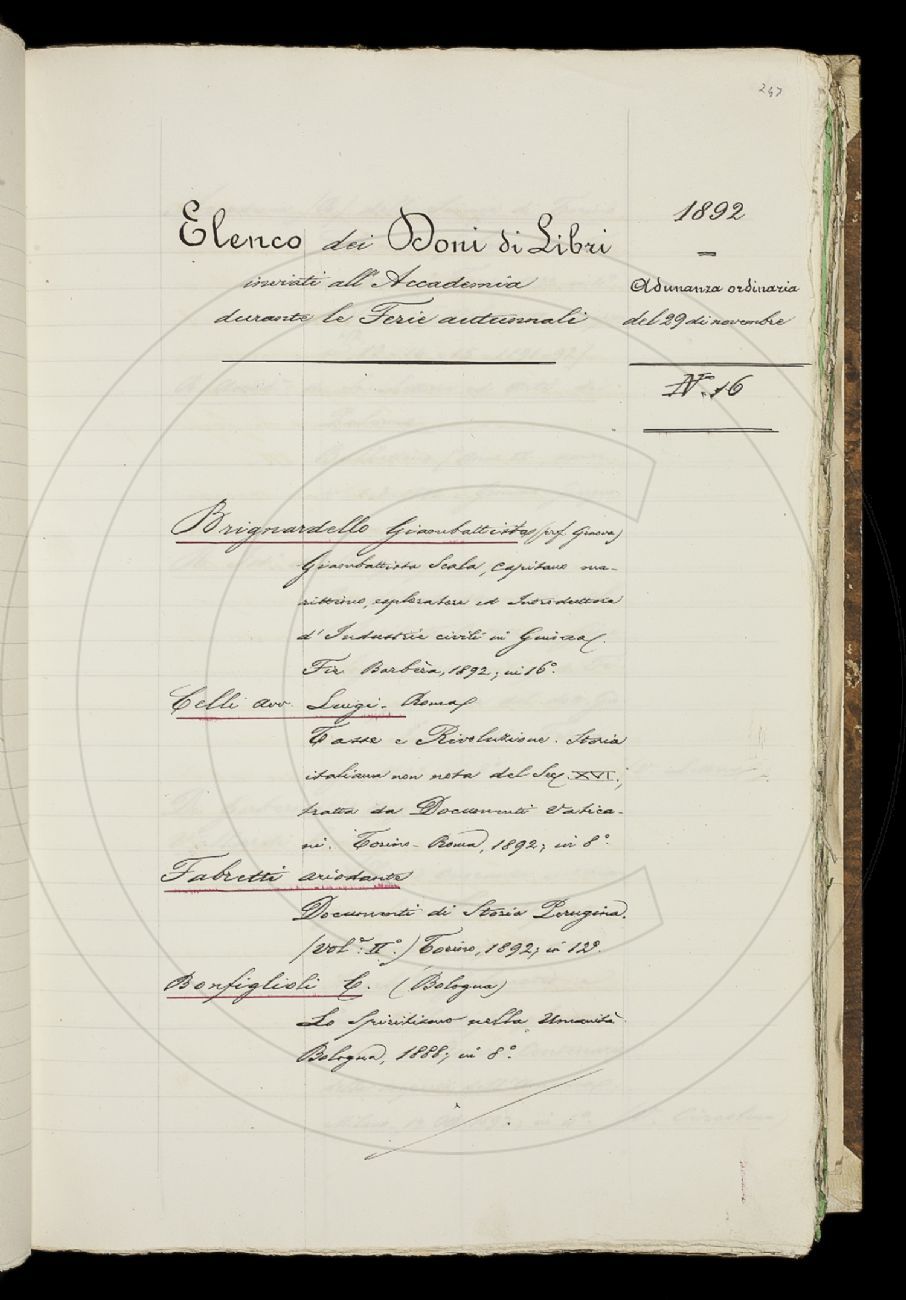 247
Elenco dei Doni di Libri
inviati all'Accademia
durante le Ferie autunnali
1892
Adunanza ordinaria
del 29 di novembre
N.° 16
Brignardello Giambattista (prof. Genova)
Giambattista Scala, Capitano ma-
rittimo, esploratore ed Introduttore
d'Industrie civili in Guinea.
Fir. Barbèra, 1892; in 16°.
Celli avv. Luigi. Roma
Tasse e Rivoluzione. Storia
italiana non nota del Sec. XVI,
tratta da Documenti Vatica-
ni. Torino - Roma, 1892; in 8°.
Fabretti Ariodante
Documenti di Storia Perugina.
(Vol.e: II°.) Torino, 1892; in 12°.
Bonfiglioli C. (Bologna)
Lo Spiritismo nella Umanità.
Bologna, 1888; in 8°.